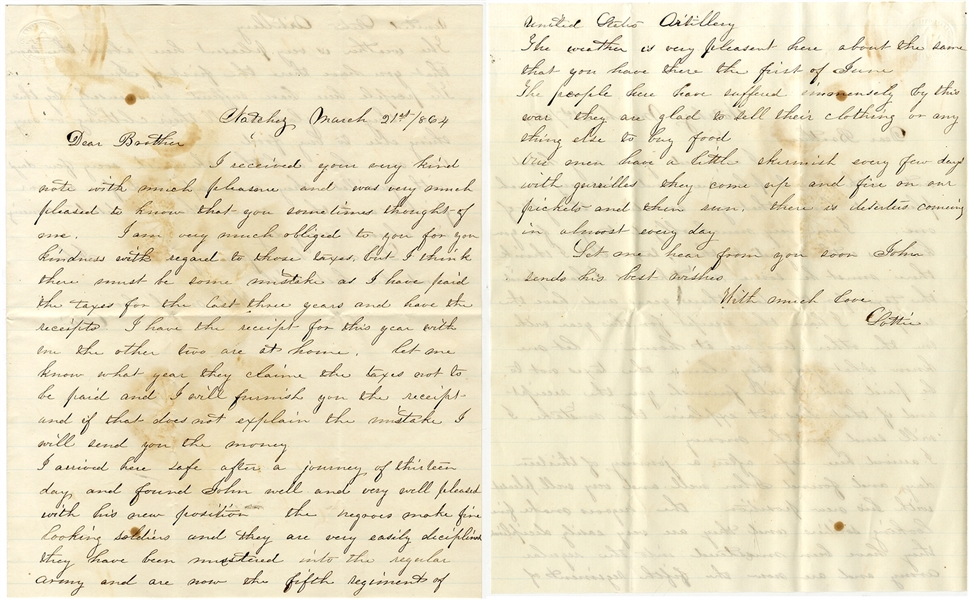 Natchez March 21st/864
Dear Brother
I received your very kind
note with much pleasure and was very much
pleased to know that you sometimes thought of
me. I am very much obliged to you for you
kindness with regard to those taxes, but I think
there must be some mistake as I have paid
the taxes for the last three years and have the
receipts I have the receipt for this year with
me the other two are at home. Let me
know what year they claim the taxes not to
be paid and I will furnish you the receipt
and if that does not explain the mistake I
will send you the money
I arrived here safe after a journey of thirteen
days and found John well and very well pleased
with his new position the negroes make fine
looking soldiers and they are very easily disciplined
they have been mustered into the regular
army and are now the fifth regiment of
United States Artillery
The weather is very pleasant here about the same
that you have there the first of June
The people here have suffered immensely by this
war they are glad to sell their clothing or any
thing else to buy food
Our men have a little skirmish every few days
with gurrilles they come up and fire on our
pickets and then run. there is deserters coming
in almost every day
Let me hear from you soon John
sends his best wishes
With much love
Lottie